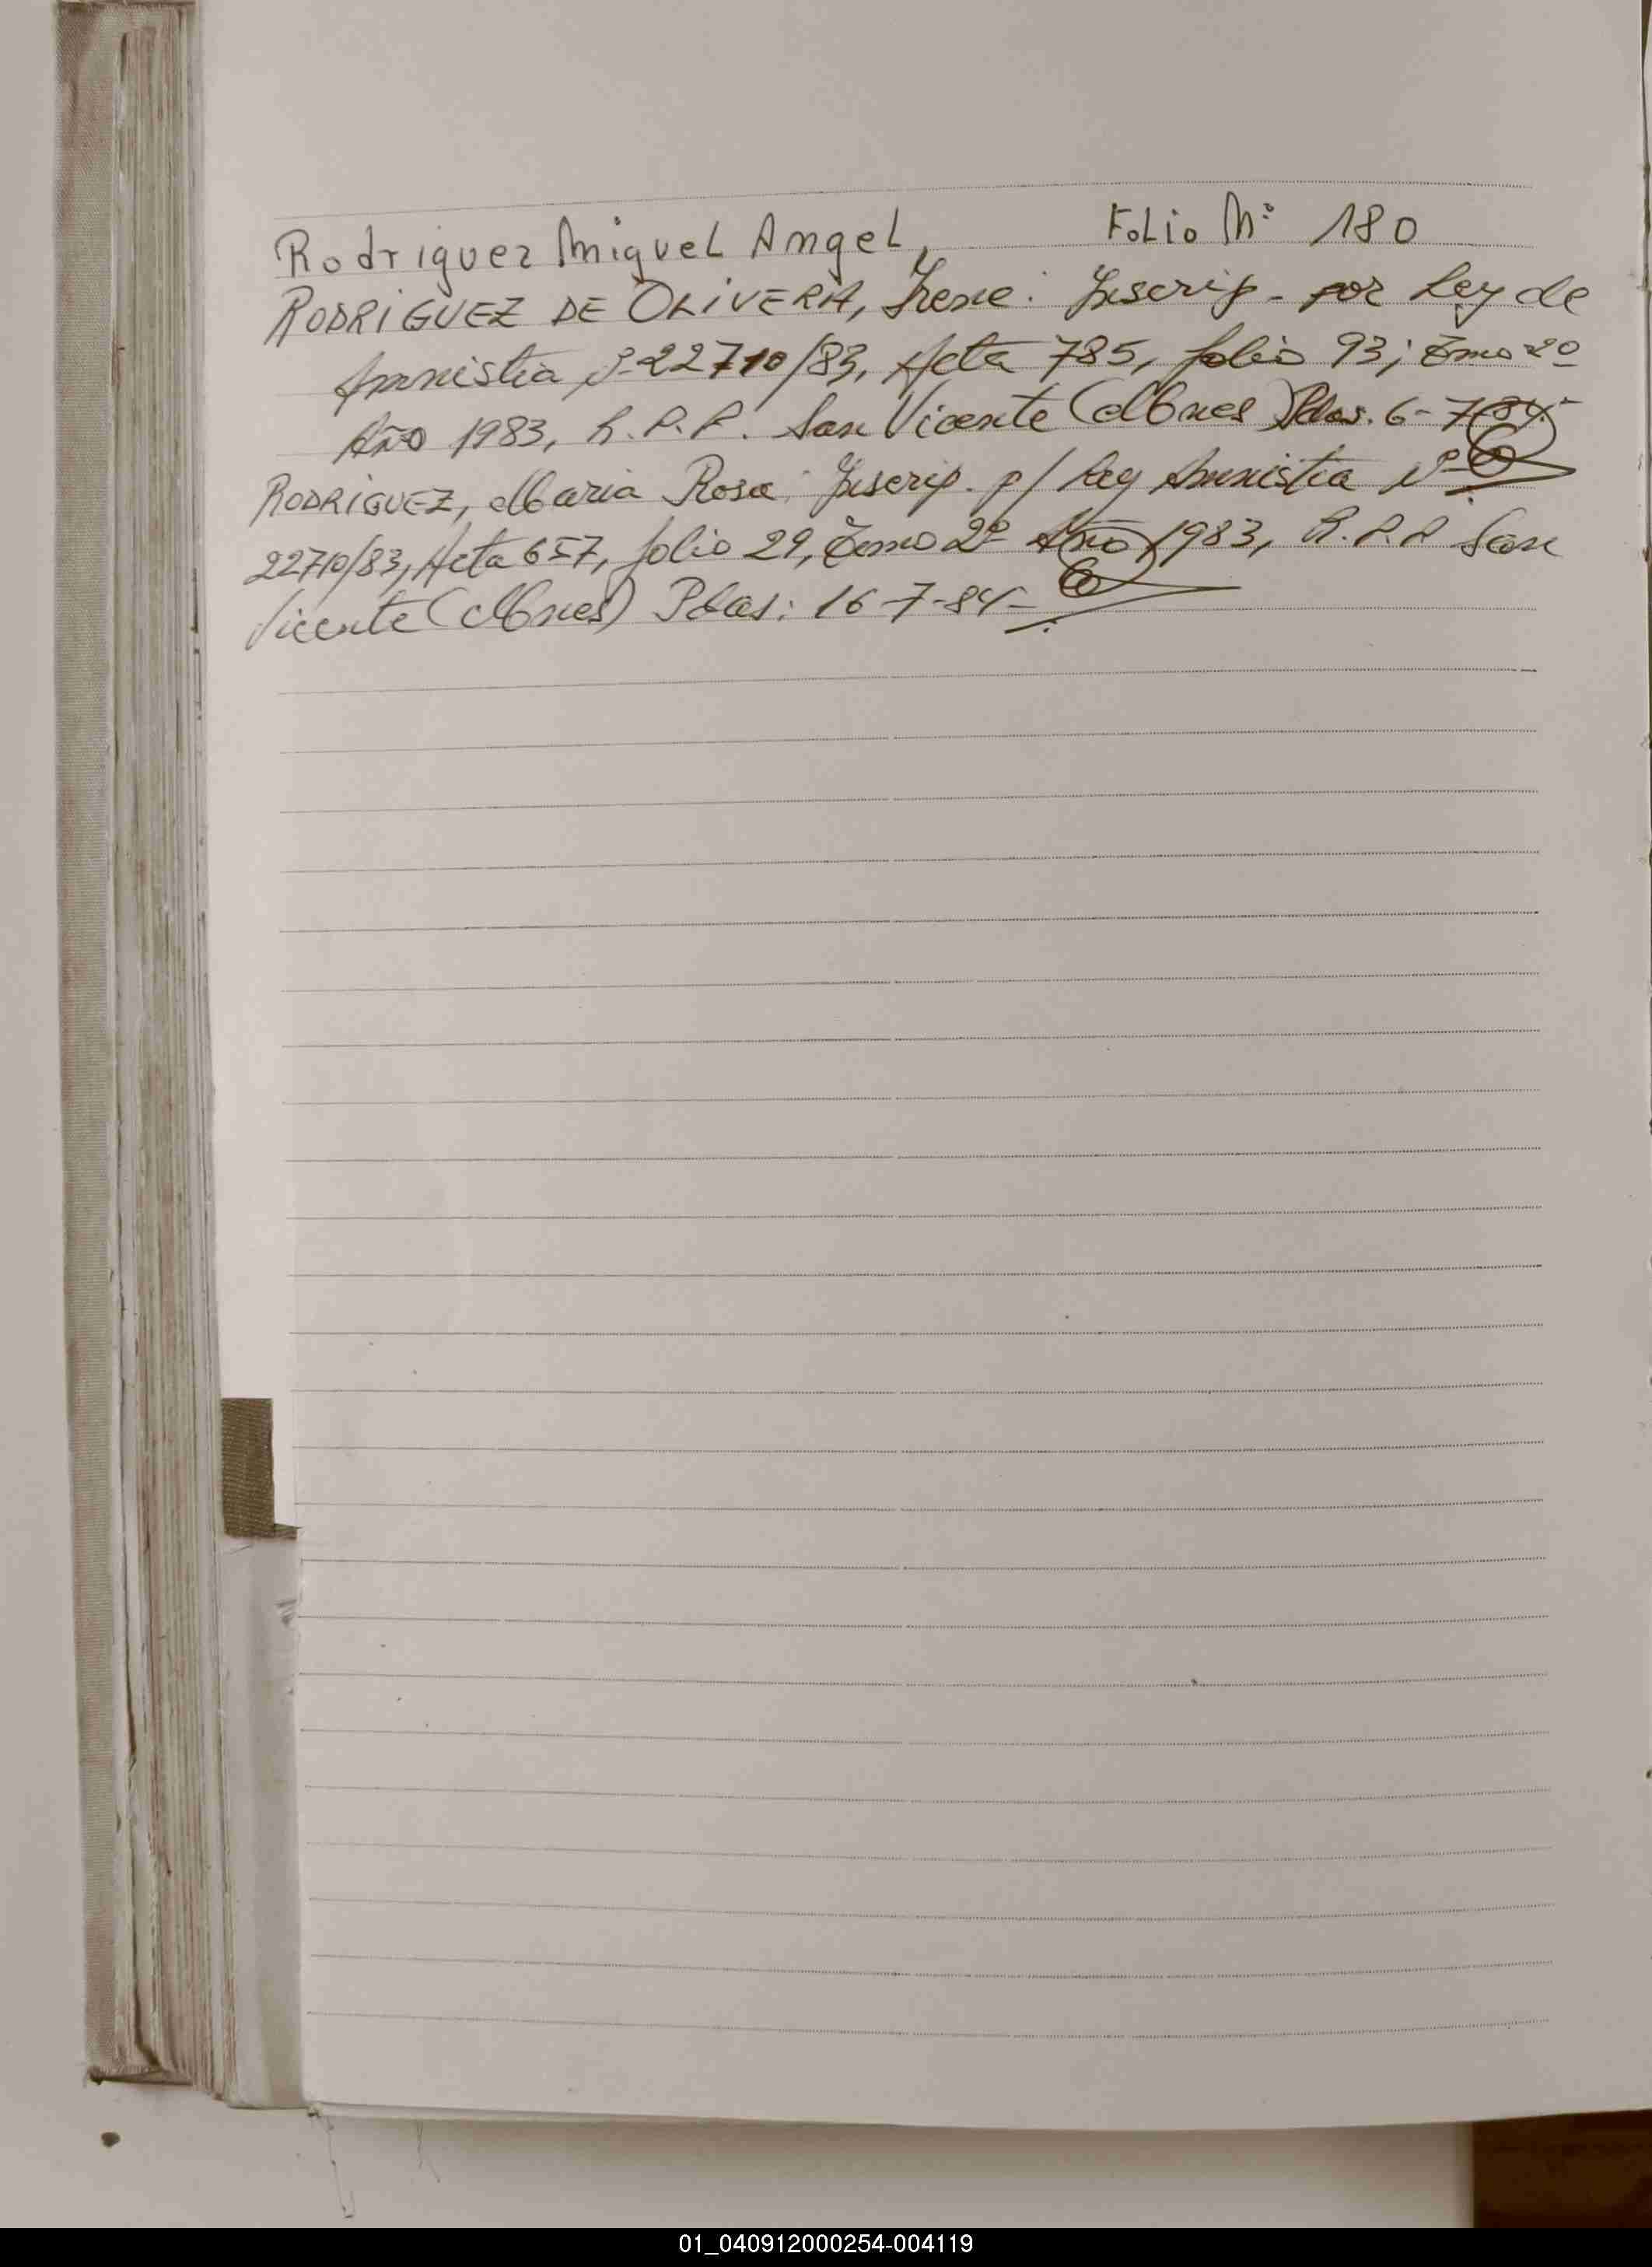 Rodriguez Miguel Angel, Folio Nº 180
RODRIGUEZ DE OLIVERA, Irene. Inscrip. por Ley de
Amnistia 22710/83, Acta 785, folio 93, Tomo 2º
Año 1983, R.P.P. San Vicente (Mnes) Pdas. 6-7-84-
RODRIGUEZ, Maria Rosa: Inscrip. p/ Ley Amnistia Nº
22710/83, Acta 657, folio 29, Tomo 2º Año 1983, R.P.P San
Vicente (Mnes) Pdas: 16-7-84-
01_040912000254-004119